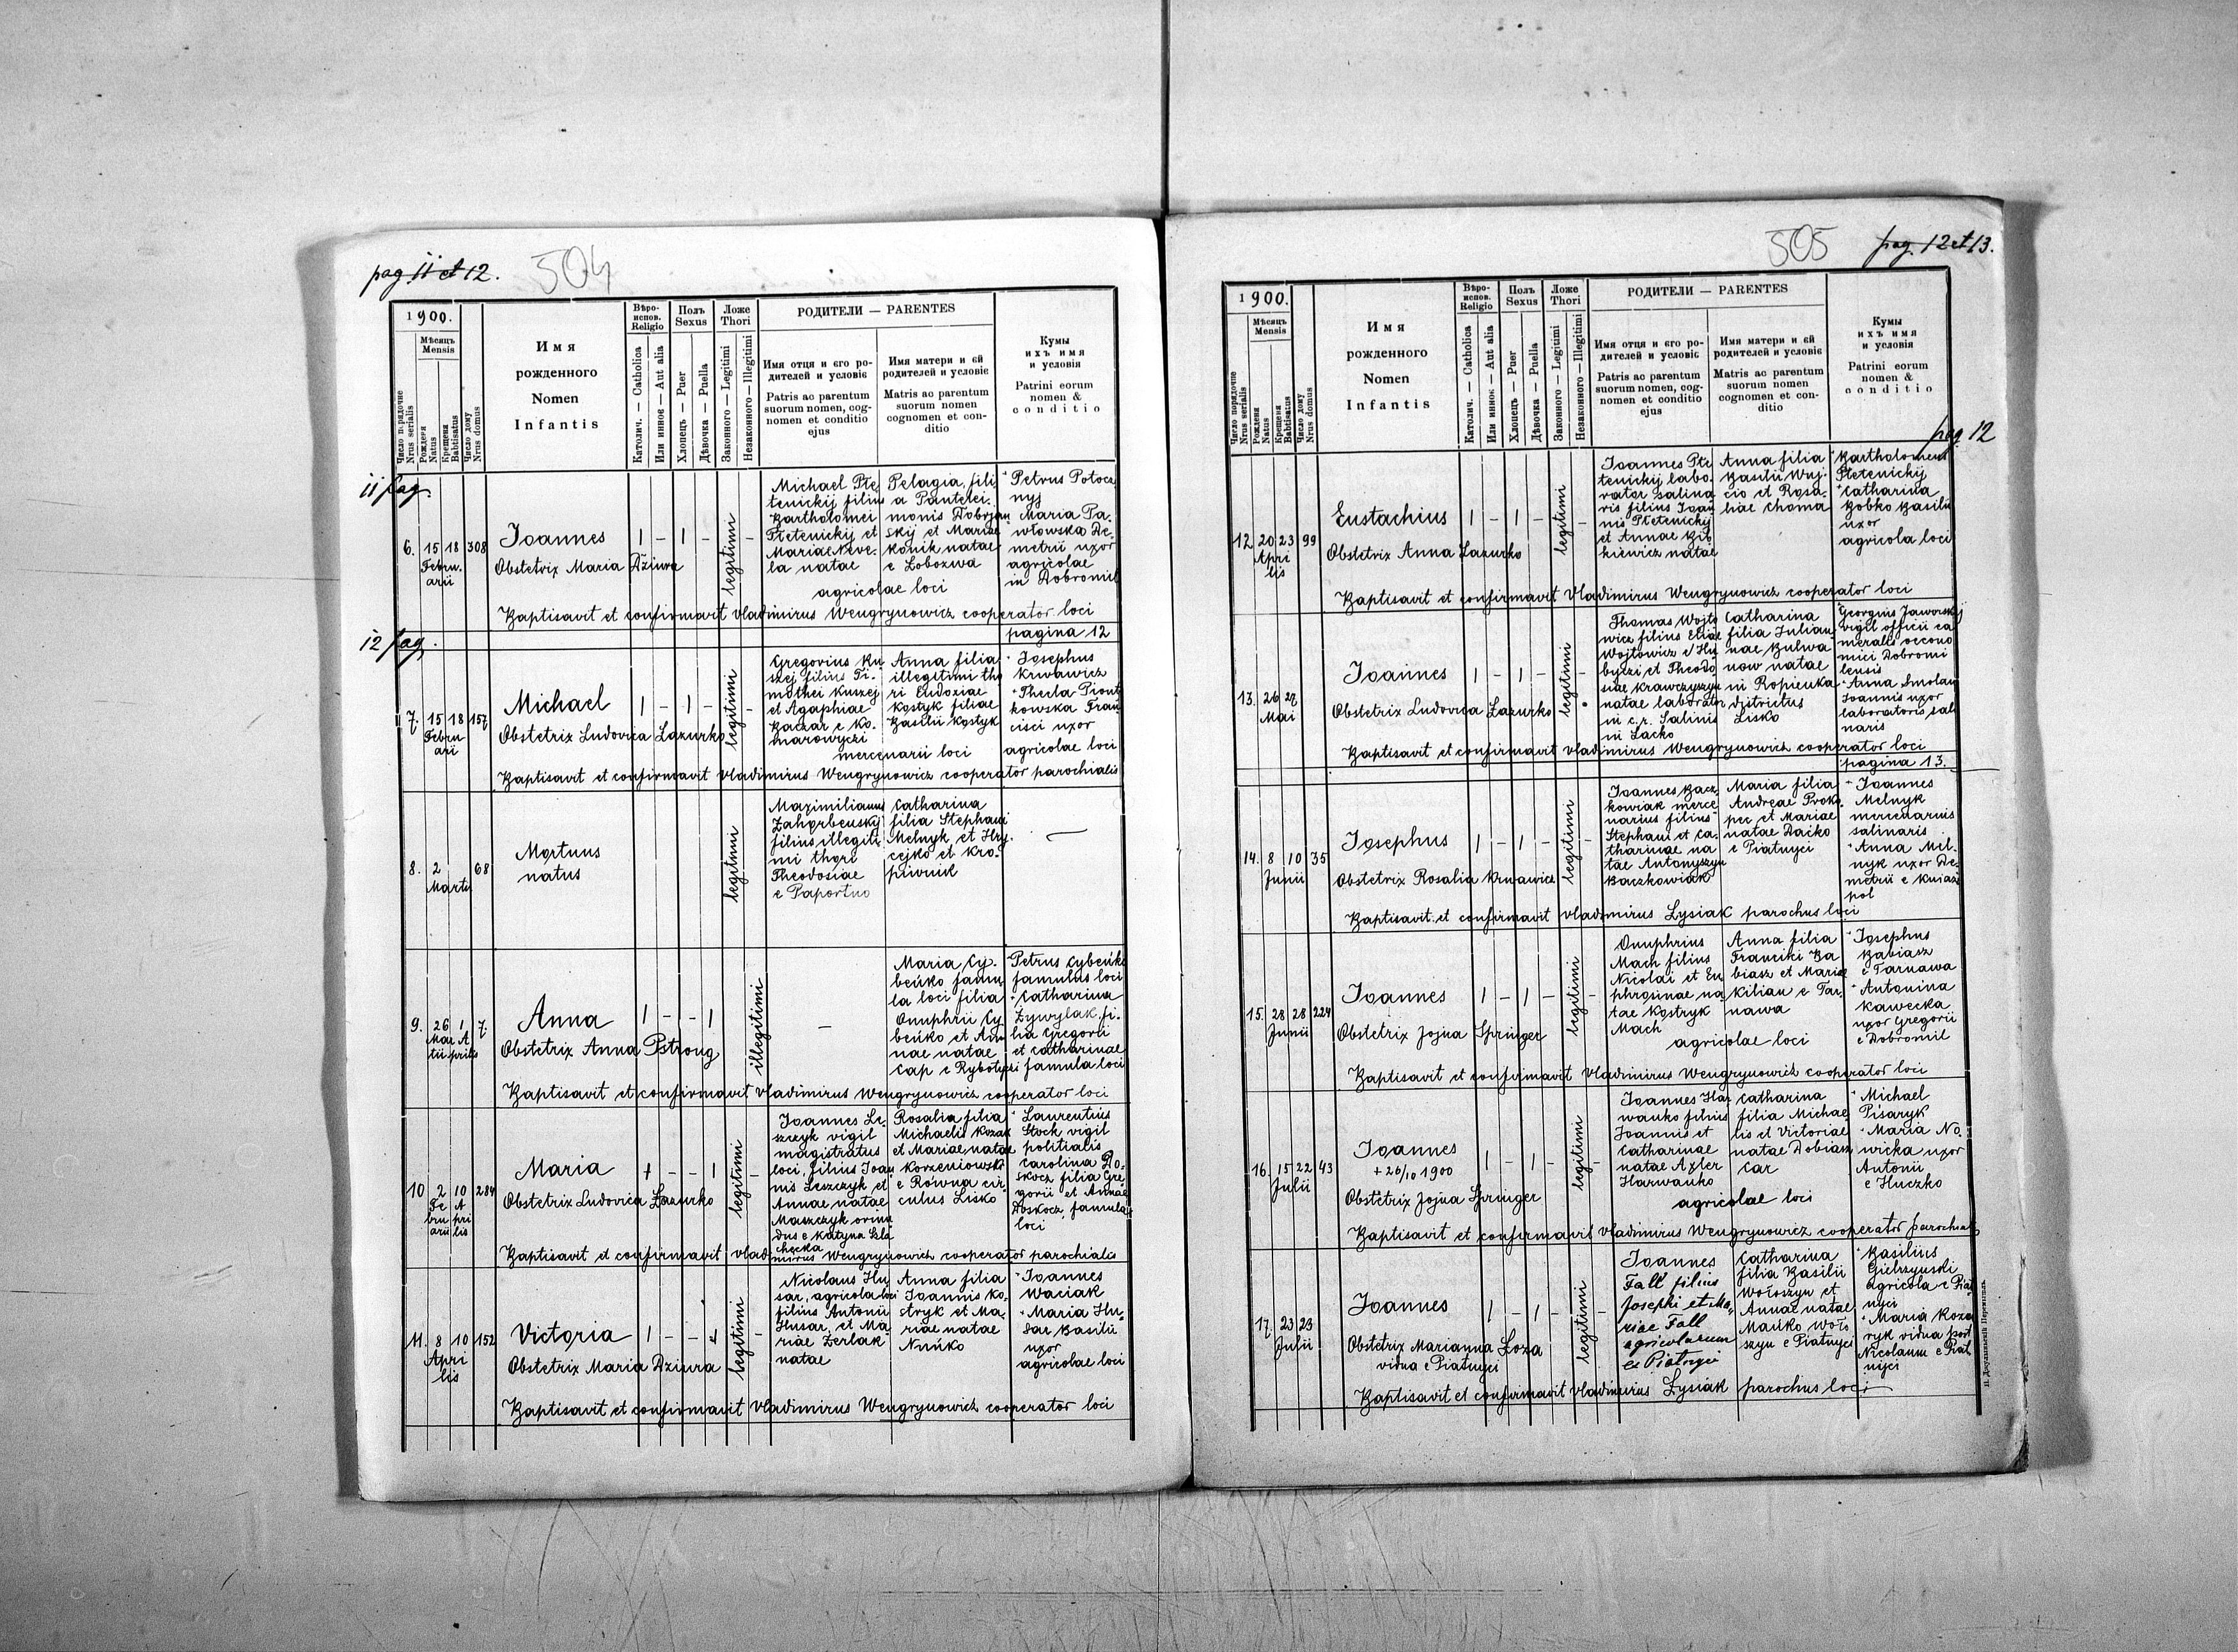 pag. 11 et 12.
504
1900.
Мѣсяць
Mensis
Число п. рядочне
Nrus serialis
Рождена
Natus
Крещена
Babtisatus
Число дому
Nrus domus
Имя
рожденного
Nomen
Infantis
Вѣро-
испов.
Religio
Католич. — Catholica
Или инное — Aut alia
Полъ
Sexus
Хлопецъ — Puer
Дѣвочка — Puella
Ложе
Thori
Законного — Legitimi
Незаконного — Illegitimi
РОДИТЕЛИ — PARENTES
Имя отця и єго ро-
дителей и условіє
Patris ac parentum
suorum nomen, cog-
nomen et conditio
ejus
Имя матери и єй
родителей и условіє
Matris ac parentum
suorum nomen
cognomen et con-
ditio
Кумы
ихъ имя
и условія
Patrini eorum
nomen &
conditio
11 pag.
6. 15 18 308
Febru-
arii
Joannes 1 - 1 -
Obstetrix Maria Dziura
legitimi
Michael Pte-
tenickij filius
Bartholomei
Ptetenickij et
Mariae Neve-
la natae
Pelagia, fili-
a Pantelei-
monis Dobrjan-
skij et Mariae
Konik natae
e Lobozwa
agricolae loci
Petrus Potocz-
nyj
Maria Pa-
włowska De-
metrii uxor
agricolae
in Dobromil
Baptisavit et confirmavit Vladimirus Wengrynowicz cooperator loci
pagina 12
12 pag.
7. 15 18 157
Febru-
arii
Michael 1 - 1 -
Obstetrix Ludovica Lazurko
legitimi
Gregorius Ku-
szej filius Ti-
mothei Kuszej
et Agaphiae
Baczar e Ko-
marowyczi
Anna filia
illegitimi tho-
ri Eudoxiae
Kostyk filiae
Basilii Kostyk
mercenarii loci
Josephus
Krwawicz
Thecla Piont-
kowska Fran-
cisci uxor
agricolae loci
Baptisavit et confirmavit Vladimirus Wengrynowicz cooperator parochialis
8. 2 68
Martii
Mortuus
natus
legitimi
Maximilianus
Zahorbenskij
filius illegiti-
mi thori
Theodosiae
e Paportno
Catharina
filia Stephani
Melnyk et Hry-
cejko et Kro-
piwnik
9. 26 1 7.
Mar A
tii prilis
Anna 1 - - 1
Obstetrix Anna Pstrong
illegitimi
Maria Cy-
beńko famu-
la loci filia
Onuphrii Cy-
beńko et An-
nae natae
Cap e Rybotyczi
Petrus Cybeńko
famulus loci
Catharina
Zywylak fi-
lia Gregorii
et Catharinae
famula loci
Baptisavit et confirmavit Vladimirus Wengrynowicz cooperator loci
10 2 10 284
Fe A
bru pri
arii lis
Maria 1 - - 1
Obstetrix Ludovica Lazurko
legitimi
Joannes Le-
szczyk vigil
magistratus
loci, filius Joan-
nis Leszczyk et
Annae natae
Maszczyk oriun-
dus e Katyna Szla-
checka
Rosalia filia
Michaelis Kozak
et Mariae natae
Korzeniowski
e Równa cir-
culus Lisko
Laurentius
Stock vigil
politialis
Carolina Do-
skocz filia Gre-
gorii et Annae
Doskocz famula
loci
Baptisavit et confirmavit Vladimirus Wengrynowicz cooperator parochialis
11. 8 10 152
Apri
lis
Victoria 1 - - 1
Obstetrix Maria Dziura
legitimi
Nicolaus Hu-
sar, agricola loci
filius Antonii
Husar, et Ma-
riae Zerlak
natae
Anna filia
Joannis Ko-
stryk et Ma-
riae natae
Nińko
Joannes
Waciak
Maria Hu-
sar Basilii
uxor
agricolae loci
Baptisavit et confirmavit Vladimirus Wengrynowicz cooperator loci
505
pag. 12 et 13.
1900.
Мѣсяць
Mensis
Число порядочне
Nrus serialis
Рождена
Natus
Крещена
Babtisatus
Число дому
Nrus domus
Имя
рожденного
Nomen
Infantis
Вѣро-
испов.
Religio
Католич. — Catholica
Или инноє — Aut alia
Полъ
Sexus
Хлопецъ — Puer
Дѣвочка — Puella
Ложе
Thori
Законного — Legitimi
Незаконного — Illegitimi
РОДИТЕЛИ — PARENTES
Имя отця и єго ро-
дителей и условіє
Patris ac parentum
suorum nomen, cog-
nomen et conditio
ejus
Имя матери и єй
родителей и условіє
Matris ac parentum
suorum nomen
cognomen et con-
ditio
Кумы
ихъ имя
и условія
Patrini eorum
nomen &
conditio
pag. 12
12 20 23 99
Apri
lis
Eustachius 1 - 1 -
Obstetrix Anna Lazurko
legitimi
Joannes Pte-
tenickij labo-
rator salina-
ris filius Joan-
nis Ptetenickij
et Annae Bit-
kiewicz natae
Anna filia
Basilii Wuj-
cio et Rosa-
liae Choma
Bartholomeus
Ptetenickij
Catharina
Bobko Basilii
uxor
agricola loci
Baptisavit et confirmavit Vladimirus Wengrynowicz cooperator loci
13. 26 27
Mai
Joannes 1 - 1 -
Obstetrix Ludovica Lazurko
legitimi
Thomas Wojto-
wicz filius Eliae
Wojtowicz e Hu-
byczi et Theodo-
siae Krawczyszyn
natae laborator
in c. r. Salinis
in Lacko
Catharina
filia Julian-
nae Bulwa
now natae
in Ropienka
districtus
Lisko
Georgius Jaworskij
vigil officii ca-
meralis oecono-
mici Dobromi-
lensis
Anna Smolan
Joannis uxor
laboratoris sali-
naris
Baptisavit et confirmavit Vladimirus Wengrynowicz cooperator loci
pagina 13.
14. 8 10 35
Junii
Josephus 1 - 1 -
Obstetrix Rosalia Krwawicz
legitimi
Joannes Bacz-
kowiak merce-
narius filius
Stephani et Ca-
tharinae na-
tae Antonyszyn
Baczkowiak
Maria filia
Andreae Prok-
pec et Mariae
natae Daćko
e Piatnyci
Joannes
Melnyk
mercedarius
salinaris
Anna Mel-
nyk uxor De-
metrii e Kniaż-
pol
Baptisavit et confirmavit Vladimirus Lysiak parochus loci
15. 28 28 224
Junii
Joannes 1 - 1 -
Obstetrix Jojna Springer
legitimi
Onuphrius
Mach filius
Nicolai et Eu-
phrosinae na-
tae Kostryk
Mach
Anna filia
Franciki Ba-
biasz et Mariae
Kilian e Tar-
nawa
agricolae loci
Josephus
Babiasz
e Tarnawa
Antonina
Kawecka
uxor Gregorii
e Dobromil
Baptisavit et confirmavit Vladimirus Wengrynowicz cooperator loci
16. 15 22 43
Julii
Joannes 1 - 1 -
+ 26/10 1900
Obstetrix Jojna Springer
legitimi
Joannes Har-
wańko filius
Joannis et
Catharinae
natae Axler
Harwańko
Catharina
filia Michae-
lis et Victoriae
natae Dobiasz
Car
agricolae loci
Michael
Pisaryk
Maria No-
wicka uxor
Antonii
e Huczko
Baptisavit et confirmavit Vladimirus Wengrynowicz cooperator parochialis
17. 23 23
Julii
Joannes 1 - 1 -
Obstetrix Marianna Loza
vidua e Piatnyci
legitimi
Joannes
Fall filius
Josephi et Ma-
riae Fall
agricolarum
ex Piatnyci
Catharina
filia Basilii
Wołoszyn et
Annae natae
Mańko Woło-
szyn e Piatnyci
Basilius
Gielrzynski
agricola e Piat-
nyci
Maria Koza-
ryk vidua post
Nicolaum e Piat-
nyci
Baptisavit et confirmavit Vladimirus Lysiak parochus loci